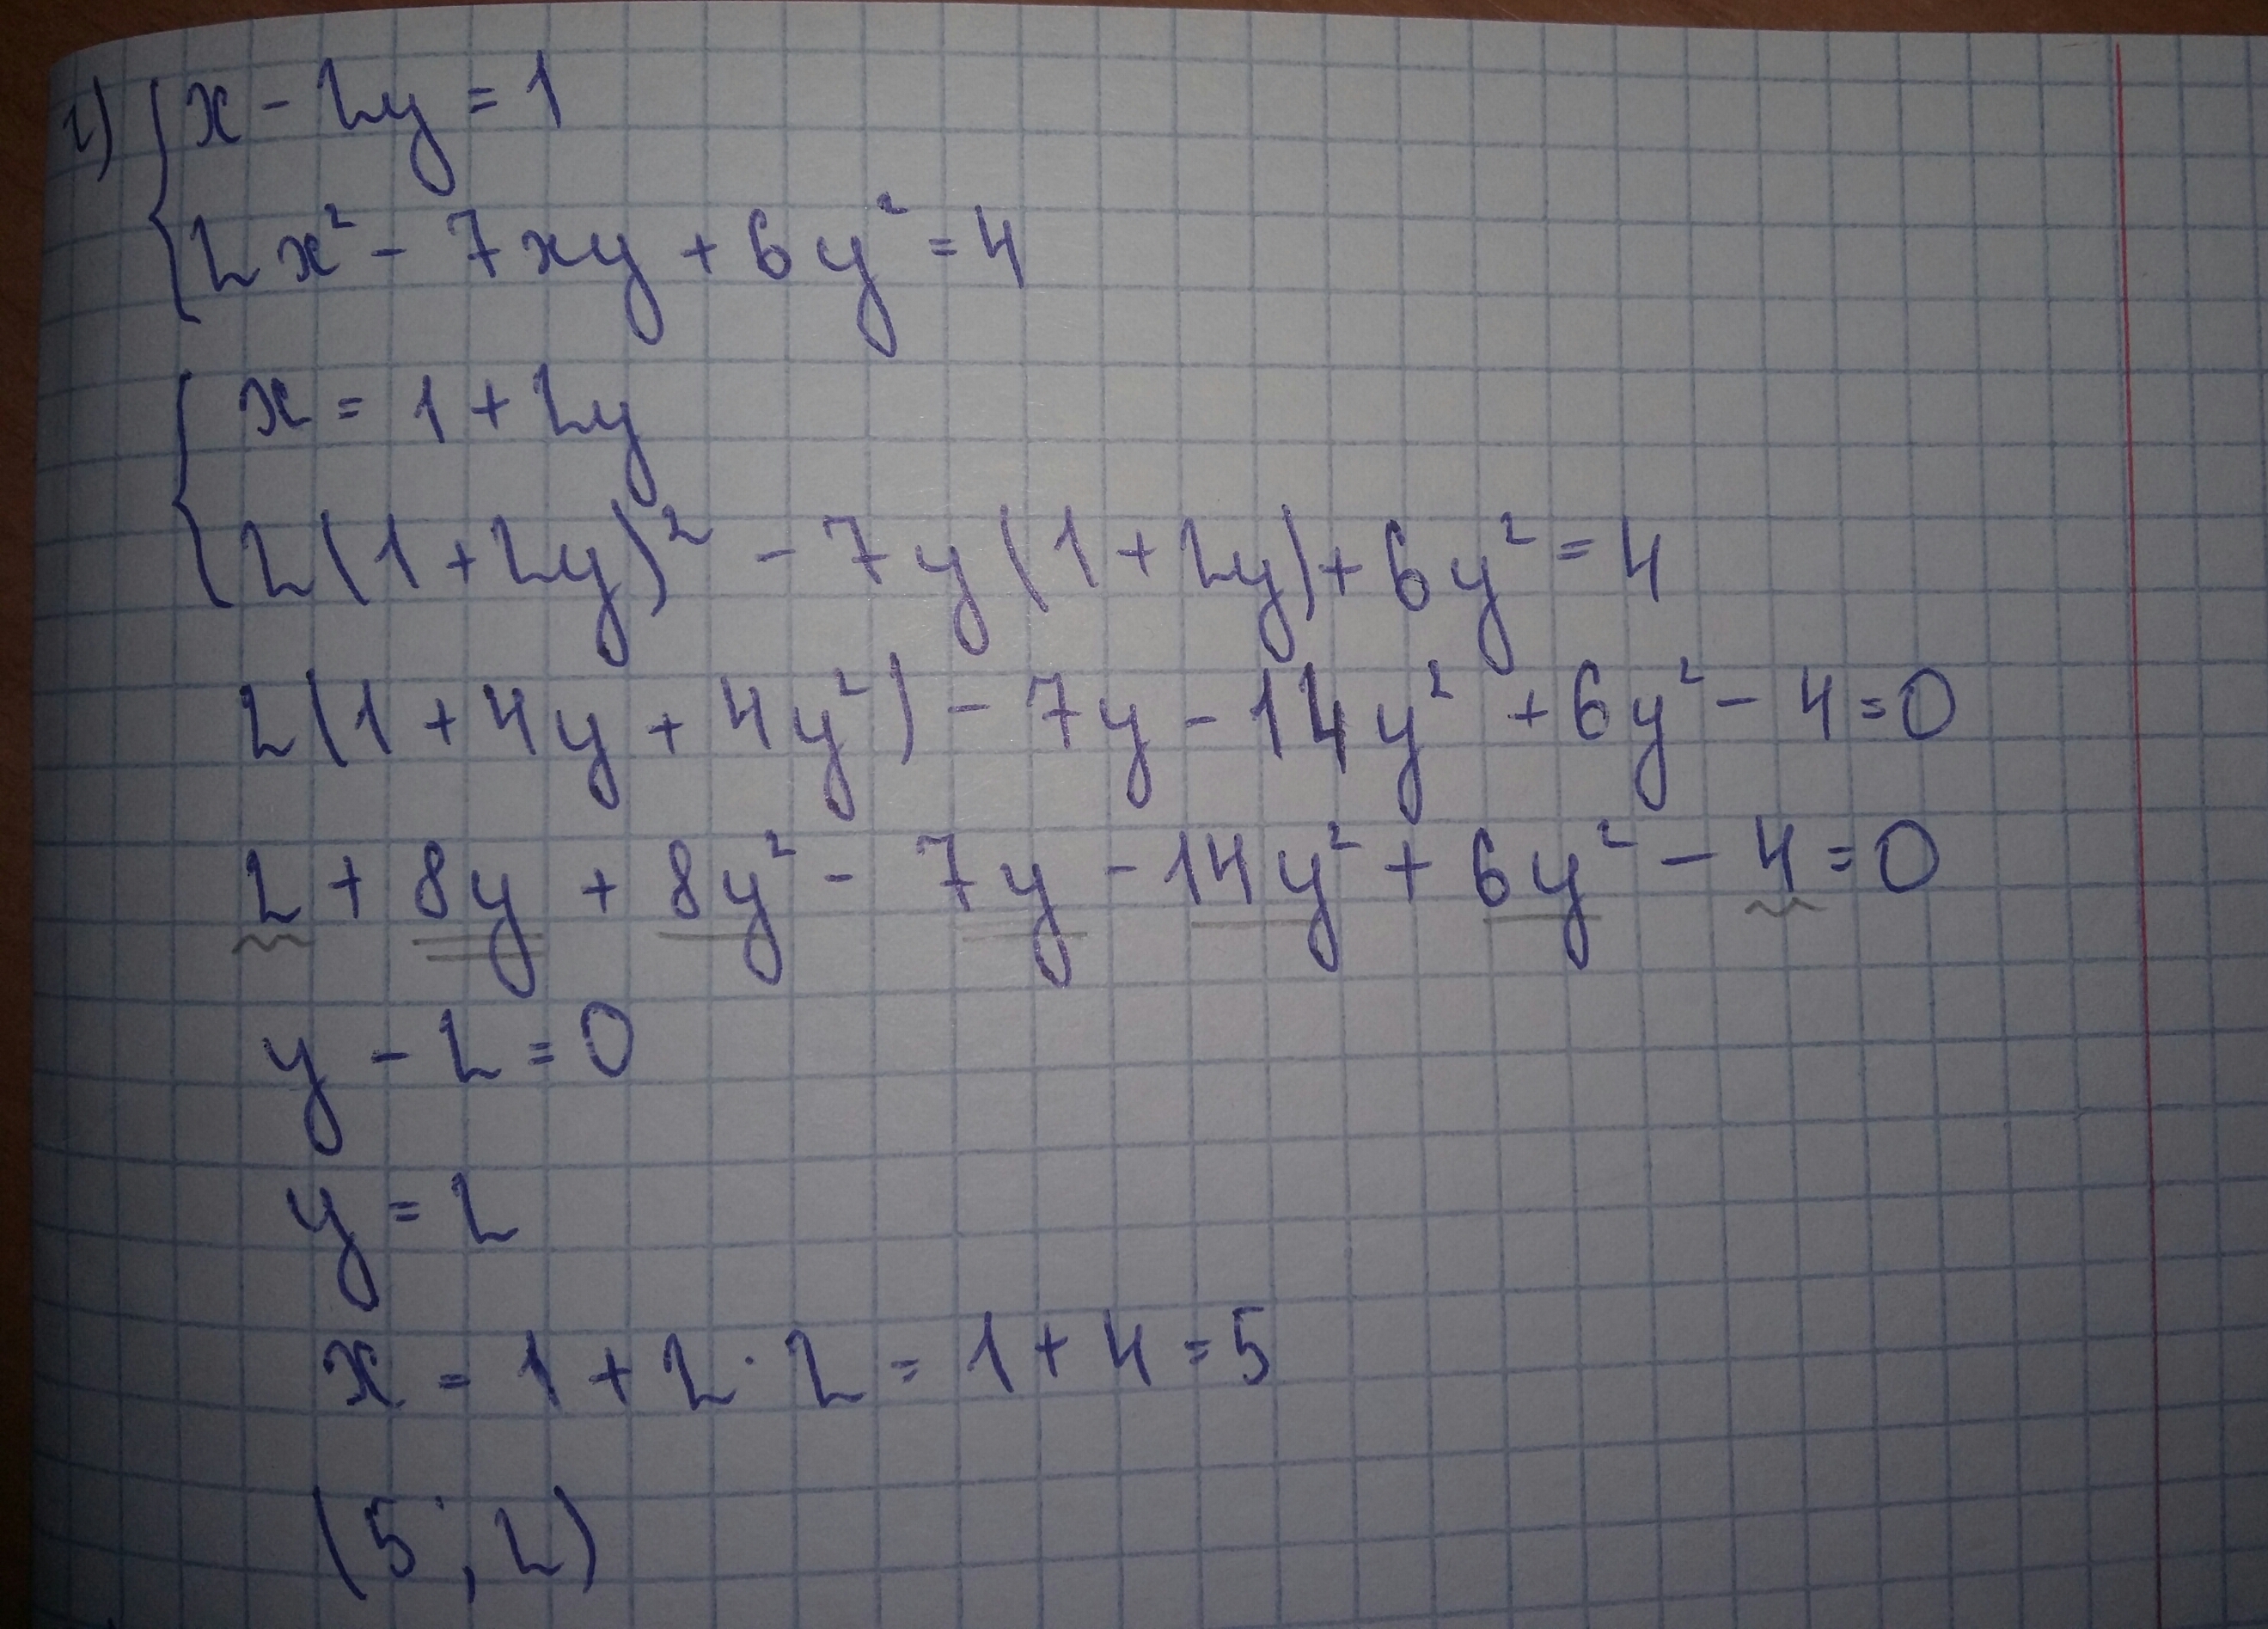 1) { x - 2y = 1
2x² - 7xy + 6y² = 4
{ x = 1 + 2y
2(1 + 2y)² - 7y(1 + 2y) + 6y² = 4
2(1 + 4y + 4y²) - 7y - 14y² + 6y² - 4 = 0
2 + 8y + 8y² - 7y - 14y² + 6y² - 4 = 0
y - 2 = 0
y = 2
x = 1 + 2 · 2 = 1 + 4 = 5
(5 ; 2)